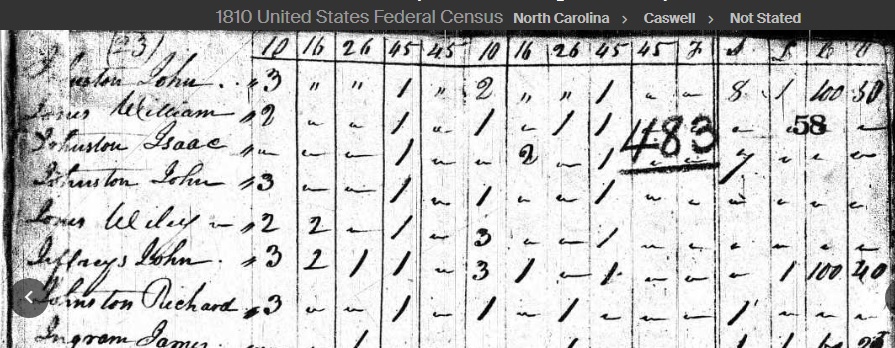 1810 United States Federal Census North Carolina > Caswell > Not Stated
(23) 10 16 26 45 45 10 16 26 45 45 F S
Johnston John . " 3 " " 1 " 2 " " 1 " " 8 1 100 30
Jones William " 2 " " 1 " 1 " 1 1 " " " "
483 58
Johnston Isaac " " " " 1 " " 2 " 1 " " 7 " " "
Johnston John " 3 " " 1 " 1 " " 1 " " " " " "
Jones Wiley " 2 2 " 1 " 3 " " 1 " " " " " "
Jeffreys John . " 3 2 1 1 " 3 1 " 1 " " " 1 100 40
Johnston Richard " 3 " " 1 " 1 " 1 " " " 1 " " "
Ingram James